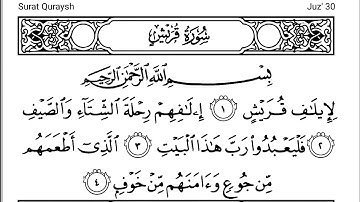 Surat Quraysh
Juz' 30
سُورَةُ قُرَيْشٍ
بِسْمِ ٱللَّهِ ٱلرَّحْمَٰنِ ٱلرَّحِيمِ
لِإِيلَٰفِ قُرَيْشٍ ١ إِۦلَٰفِهِمْ رِحْلَةَ ٱلشِّتَآءِ وَٱلصَّيْفِ
٢ فَلْيَعْبُدُوا۟ رَبَّ هَٰذَا ٱلْبَيْتِ ٣ ٱلَّذِىٓ أَطْعَمَهُم
مِّن جُوعٍ وَءَامَنَهُم مِّنْ خَوْفٍۭ ٤